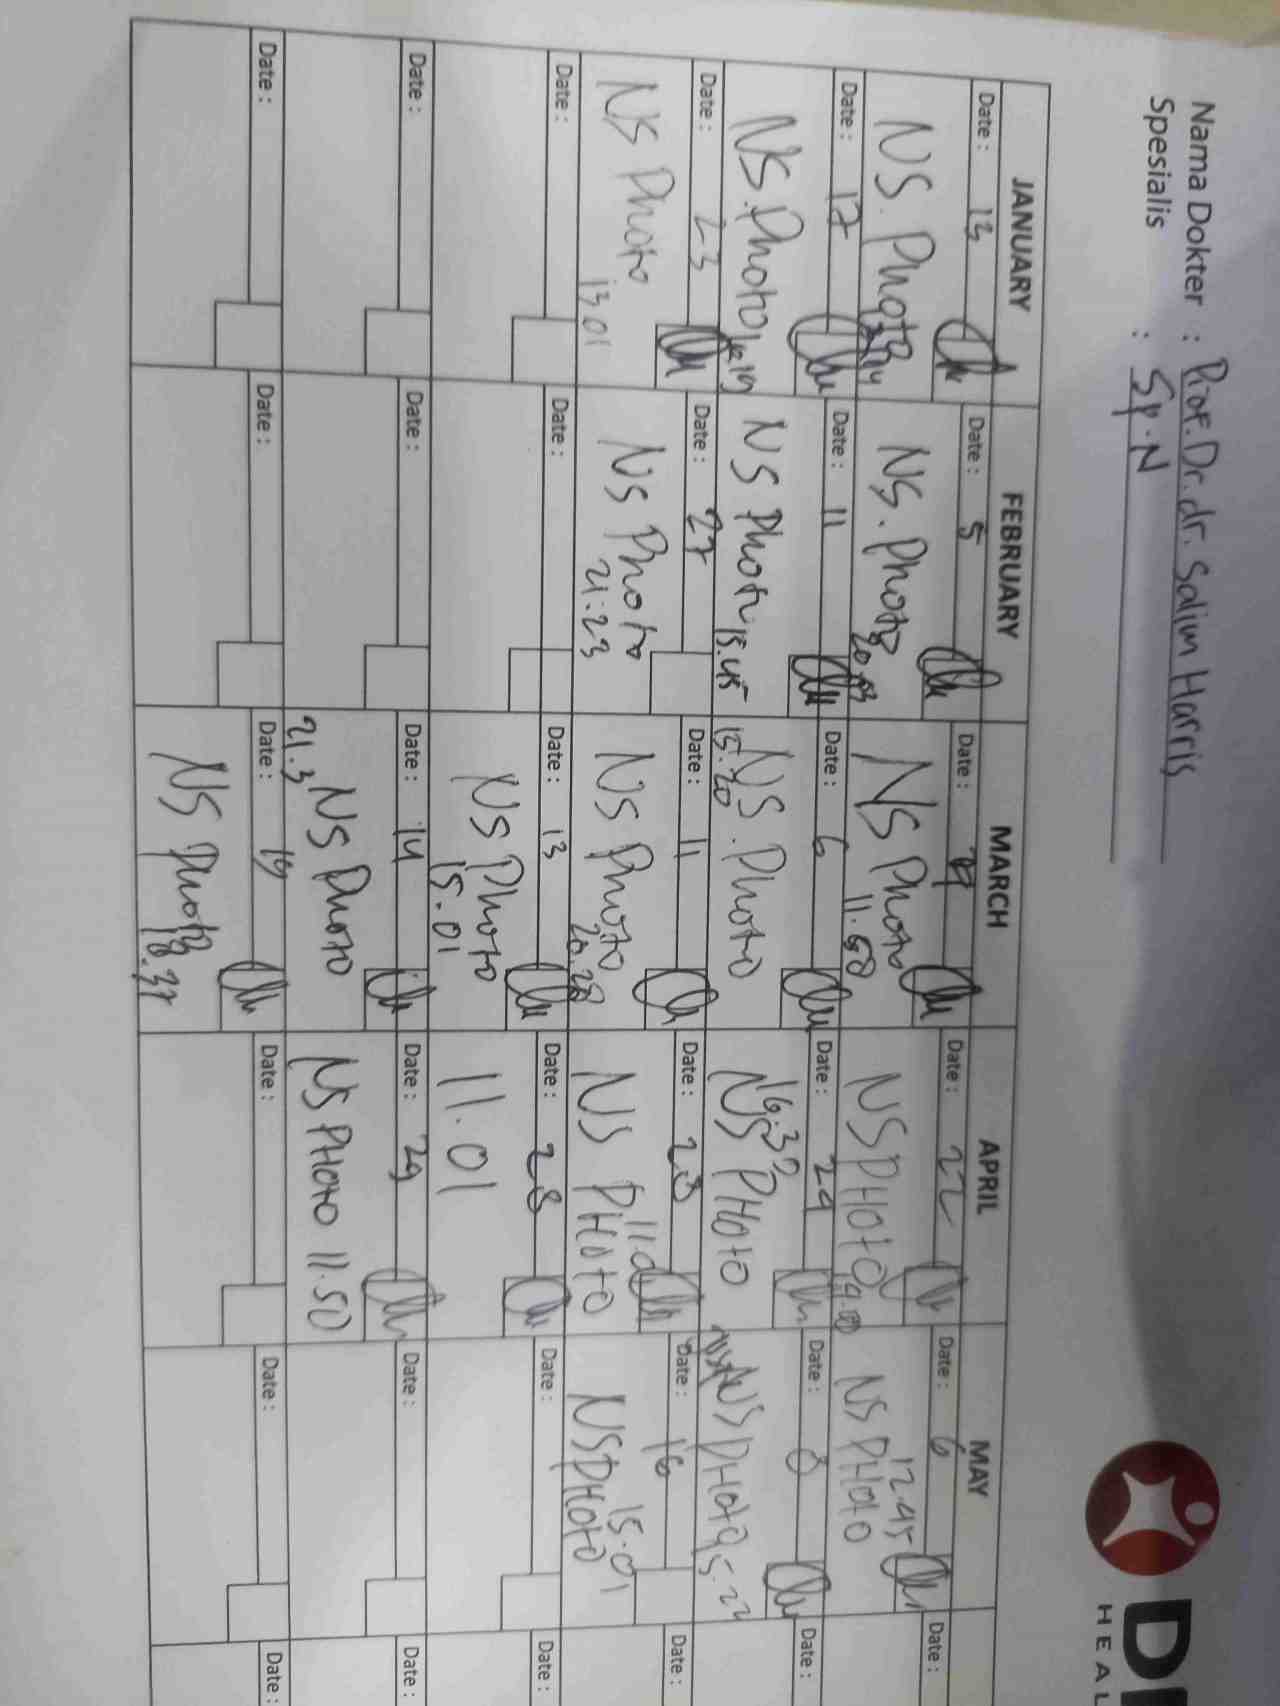 Nama Dokter : Prof. Dr. dr. Salim Harris
Spesialis : Sp. N
D
HEAL
JANUARY FEBRUARY MARCH APRIL MAY
Date : 13 Date : 5 Date : Date : 22 Date : 6 Date :
NS. Photo NS. Photo 20.03 NS Photo 11.58 NS PHOTO NS PHOTO 12.45
Date : 17 Date : 11 Date : 6 Date : 24 Date : 8 Date :
NS. Photo NS Photo 15.45 15.20 NS. Photo 16.30 NS PHOTO NS PHOTO
Date : 23 Date : 27 Date : 11 Date : 28 Date : 16 Date :
NS Photo 13.01 NS Photo 21.23 NS Photo 20.28 NS PHOTO NS PHOTO 15.01
Date : Date : Date : 13 Date : 28 Date : Date :
NS Photo 15.01 11.01
Date : Date : Date : 14 Date : 29 Date : Date :
21.3 NS Photo NS PHOTO 11.50
Date : Date : Date : 19 Date : Date : Date :
NS Photo 18.37